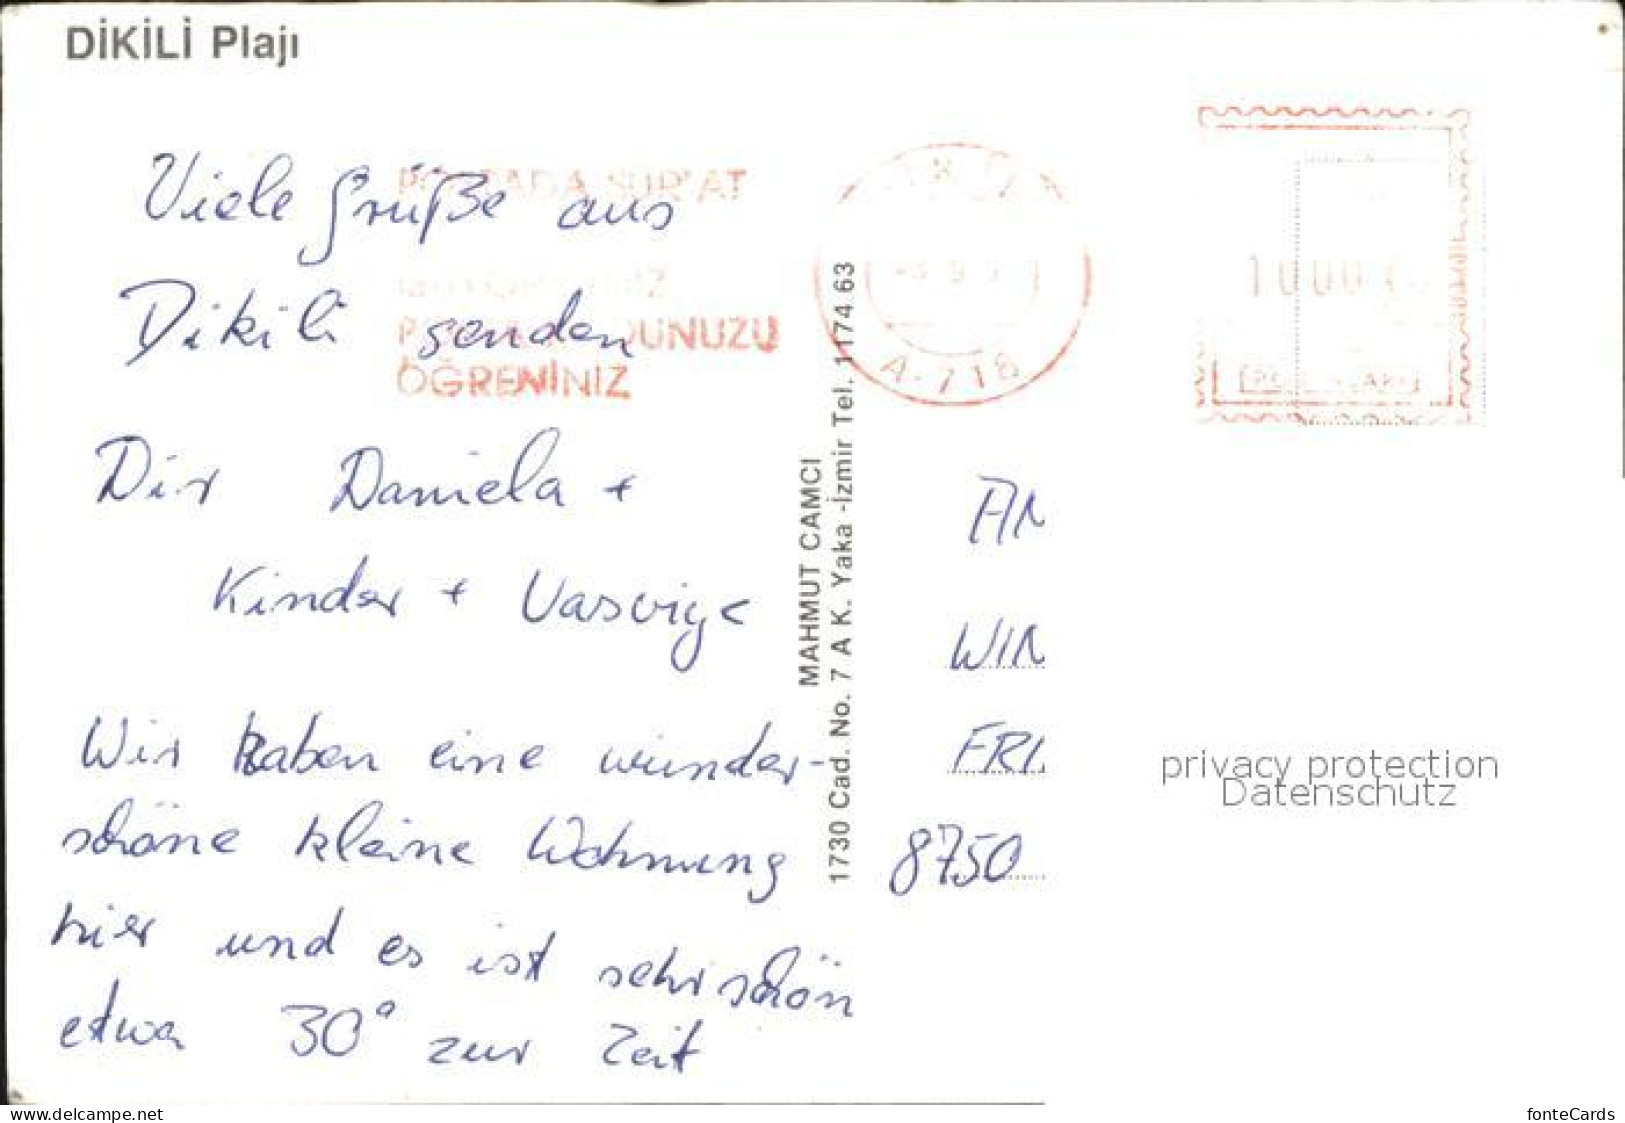 DİKİLİ Plajı
Viele Grüße aus
Dikili senden
Dir Daniela +
Kinder +
Wir haben eine wunder-
schöne kleine Wohnung
hier und es ist sehr schön
etwa 30° zur Zeit
SÜR'AT
ÖĞRENİNİZ
A-718
MAHMUT CAMCI
1730 Cad. No. 7 A K. Yaka -İzmir Tel. 1174 63
8750
privacy protection
Datenschutz
www.delcampe.net
fonteCards